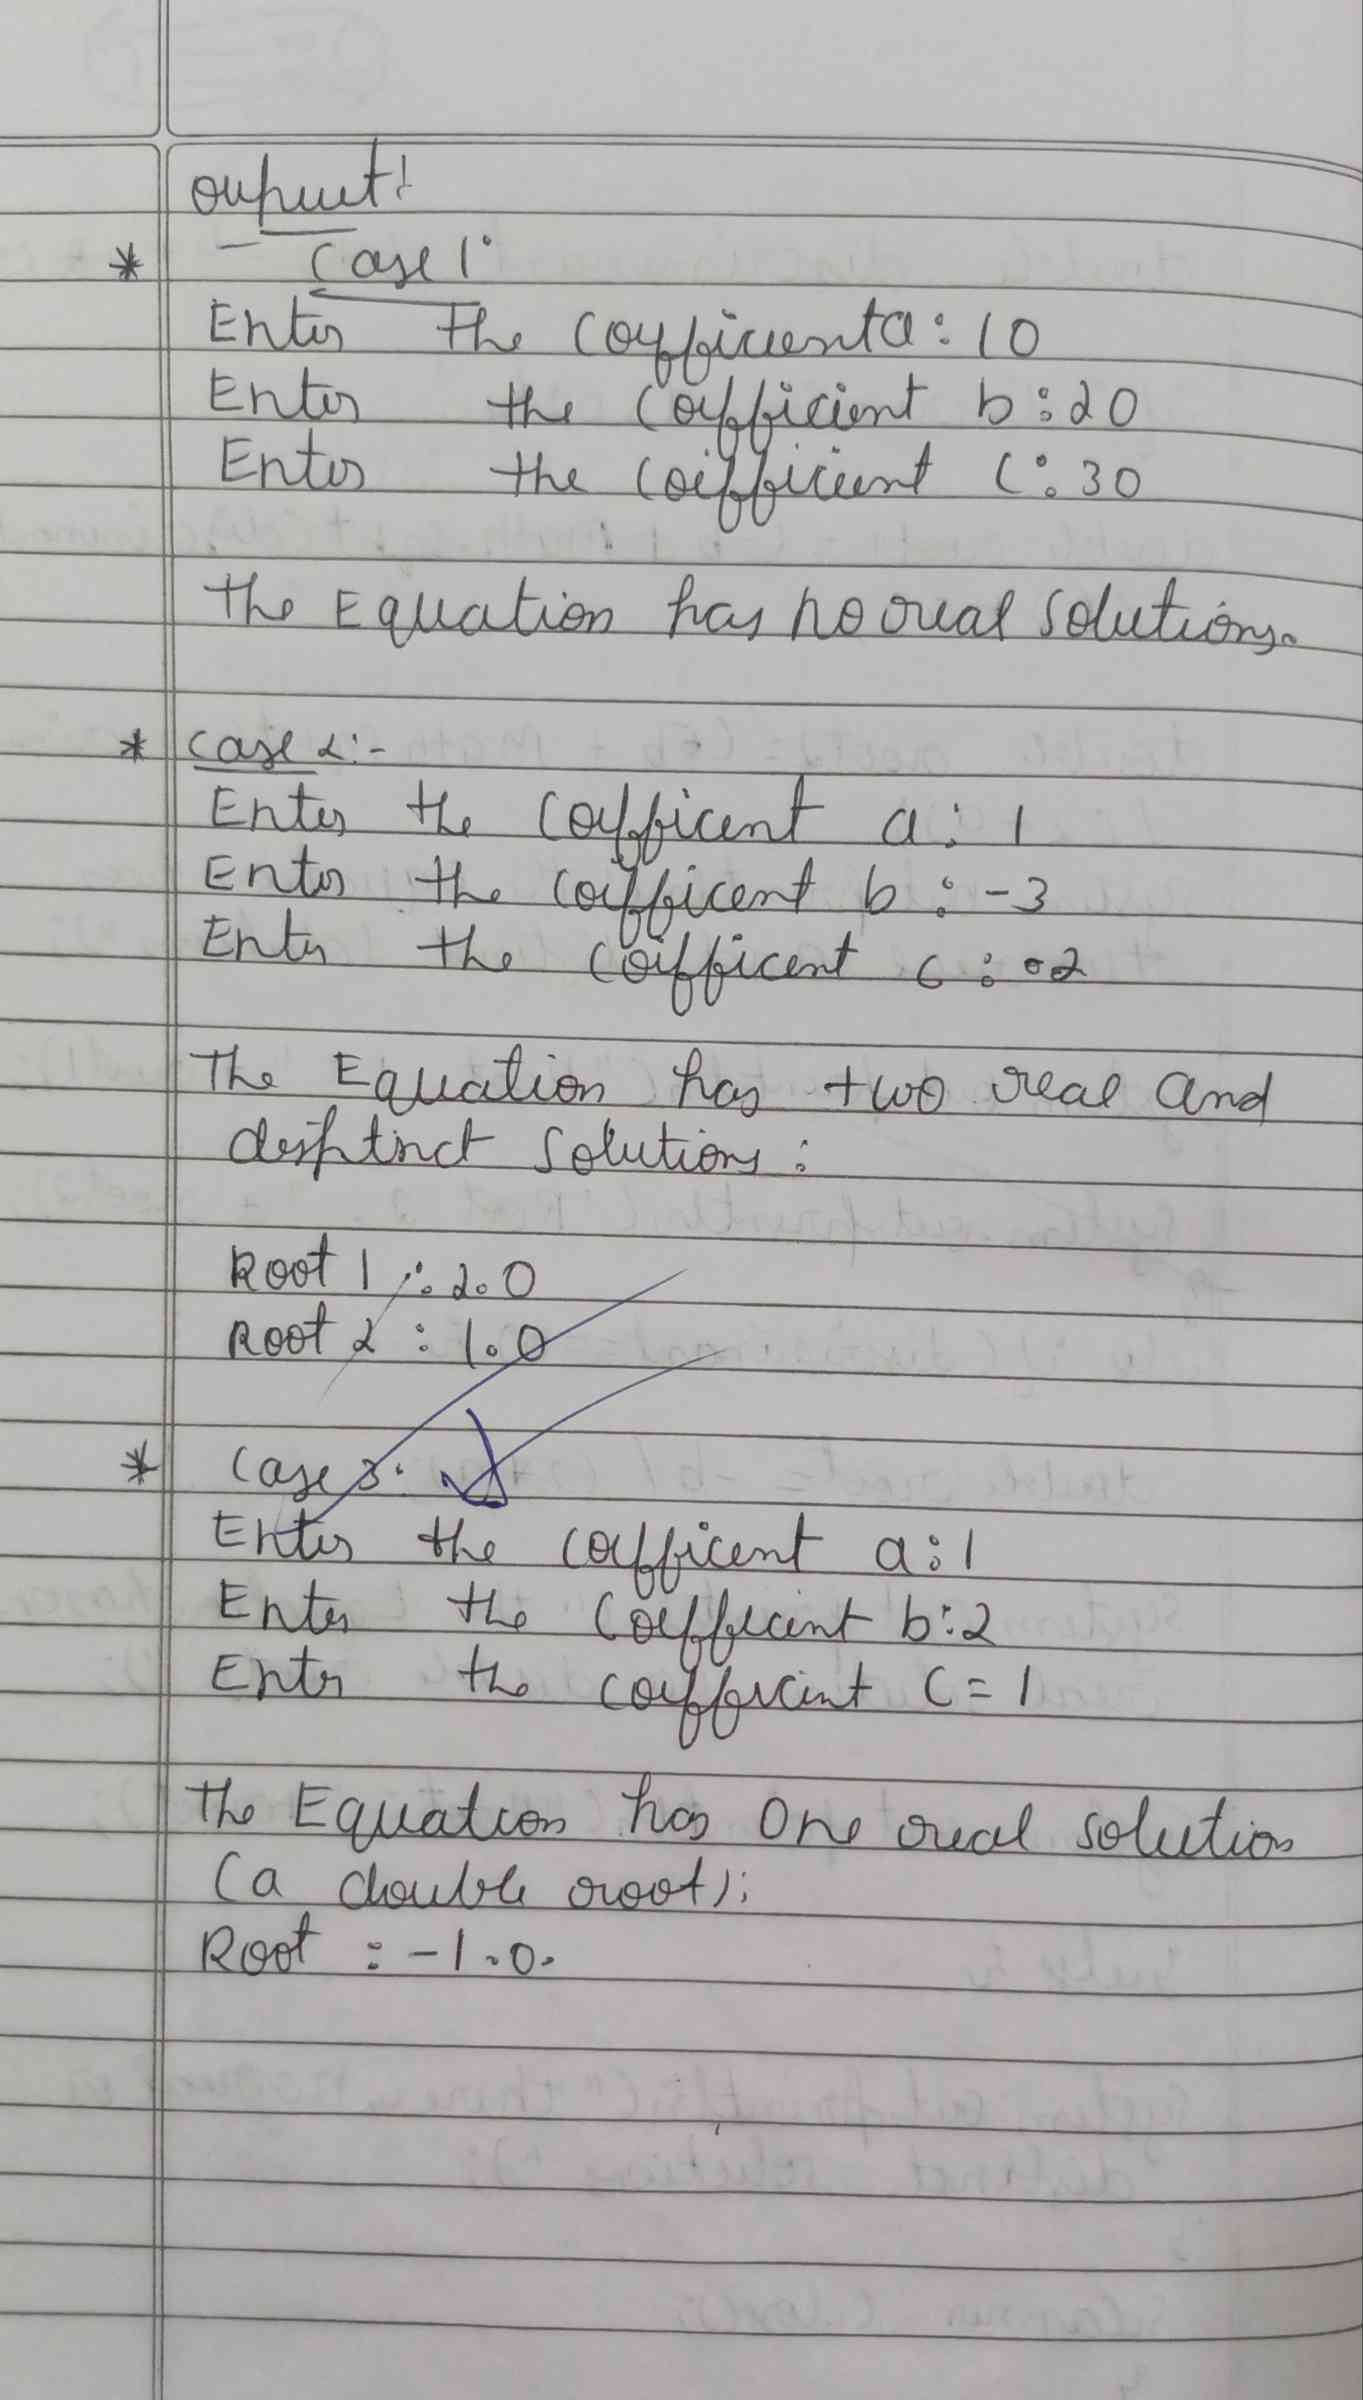 ouput:
* Case 1:
Enter the coefficient a: 10
Enter the coefficient b: 20
Enter the coeifficient c: 30
the Equation has no real solutions.
* case 2:-
Enter the coefficent a: 1
Enter the coefficent b: -3
Enter the coefficent c: 02
The Equation has two real and
distinct solutions:
Root 1 : 2.0
Root 2 : 1.0
* Case 3:
Enter the coefficent a: 1
Enter the coefficent b: 2
Enter the coefficint c = 1
the Equation has one real solution
(a double root):
Root : -1.0.